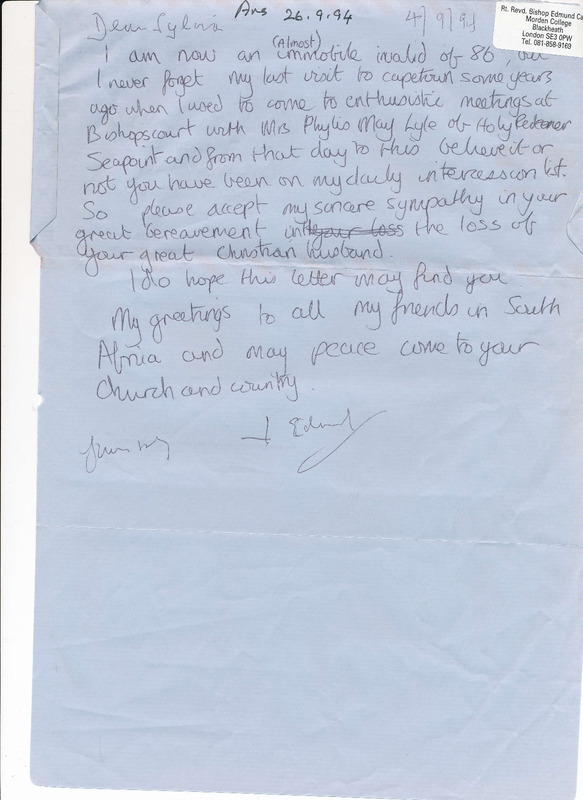 Ans 26.9.94
4/9/94
Rt. Revd. Bishop Edmund Ca
Morden College
Blackheath
London SE3 0PW
Tel. 081-858-9169
Dear Sylvia
I am now an (Almost) immobile invalid of 86, but
I never forget my last visit to capetown some years
ago when I used to come to enthusistic meetings at
Bishopscourt with Mrs Phylis May Lyle of Holy Redeemer
Seapoint and from that day to this believe it or
not you have been on my daily intercession list.
So please accept my sincere sympathy in your
great bereavement in your loss the loss of
your great Christian husband.
I do hope this letter may find you
My greetings to all my friends in South
Africa and may peace come to your
Church and country.
+ Edmund